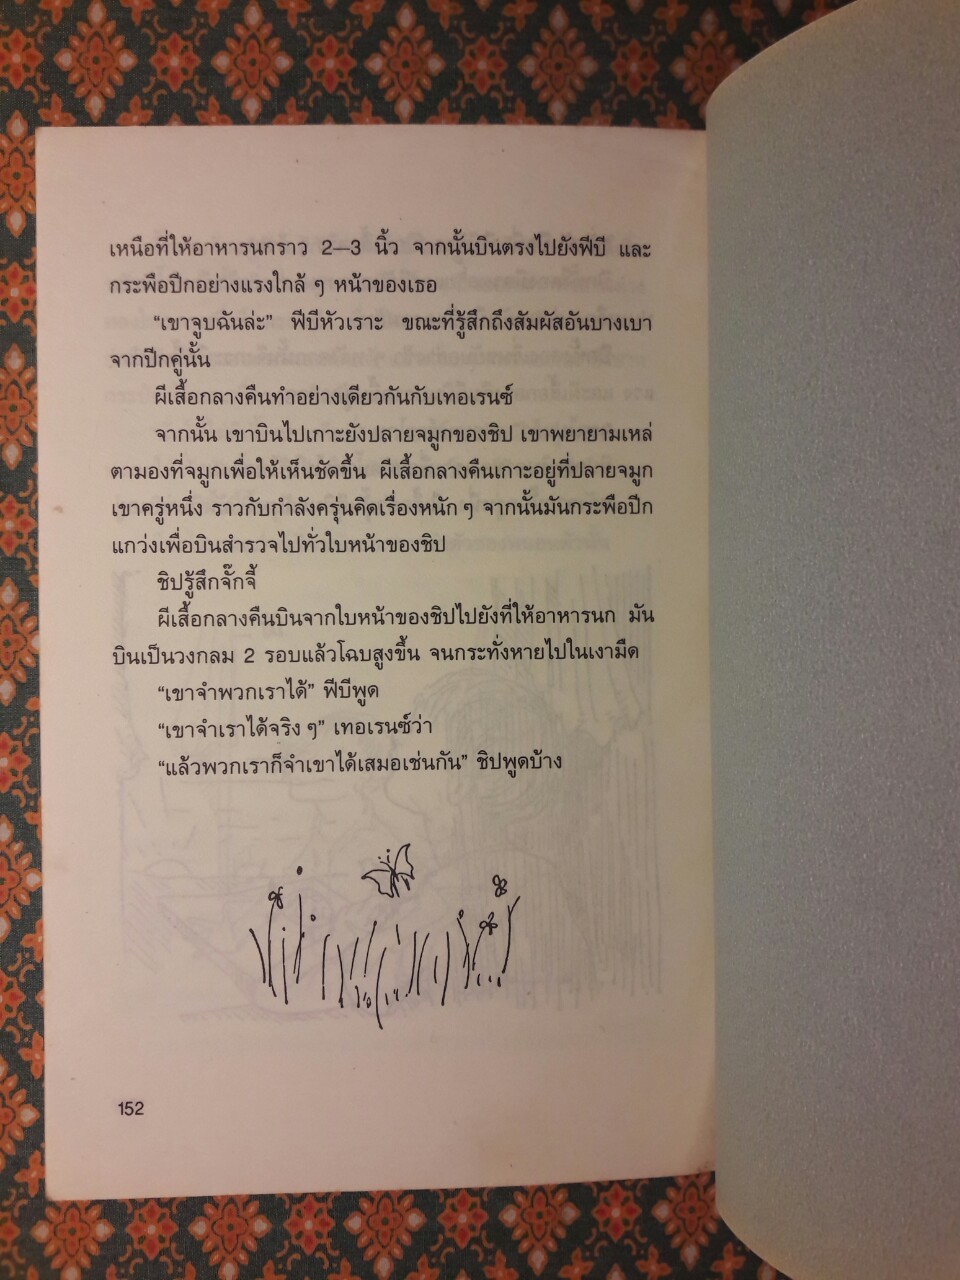 เหนือที่ให้อาหารนกราว 2—3 นิ้ว จากนั้นบินตรงไปยังฟีบี และ
กระพือปีกอย่างแรงใกล้ ๆ หน้าของเธอ
“เขาจูบฉันล่ะ” ฟีบีหัวเราะ ขณะที่รู้สึกถึงสัมผัสอันบางเบา
จากปีกคู่นั้น
ผีเสื้อกลางคืนทำอย่างเดียวกันกับเทอเรนซ์
จากนั้น เขาบินไปเกาะยังปลายจมูกของชิป เขาพยายามเหล่
ตามองที่จมูกเพื่อให้เห็นชัดขึ้น ผีเสื้อกลางคืนเกาะอยู่ที่ปลายจมูก
เขาครู่หนึ่ง ราวกับกำลังครุ่นคิดเรื่องหนัก ๆ จากนั้นมันกระพือปีก
แกว่งเพื่อบินสำรวจไปทั่วใบหน้าของชิป
ชิปรู้สึกจั๊กจี้
ผีเสื้อกลางคืนบินจากใบหน้าของชิปไปยังที่ให้อาหารนก มัน
บินเป็นวงกลม 2 รอบแล้วโฉบสูงขึ้น จนกระทั่งหายไปในเงามืด
“เขาจำพวกเราได้” ฟีบีพูด
“เขาจำเราได้จริง ๆ” เทอเรนซ์ว่า
“แล้วพวกเราก็จำเขาได้เสมอเช่นกัน” ชิปพูดบ้าง
152